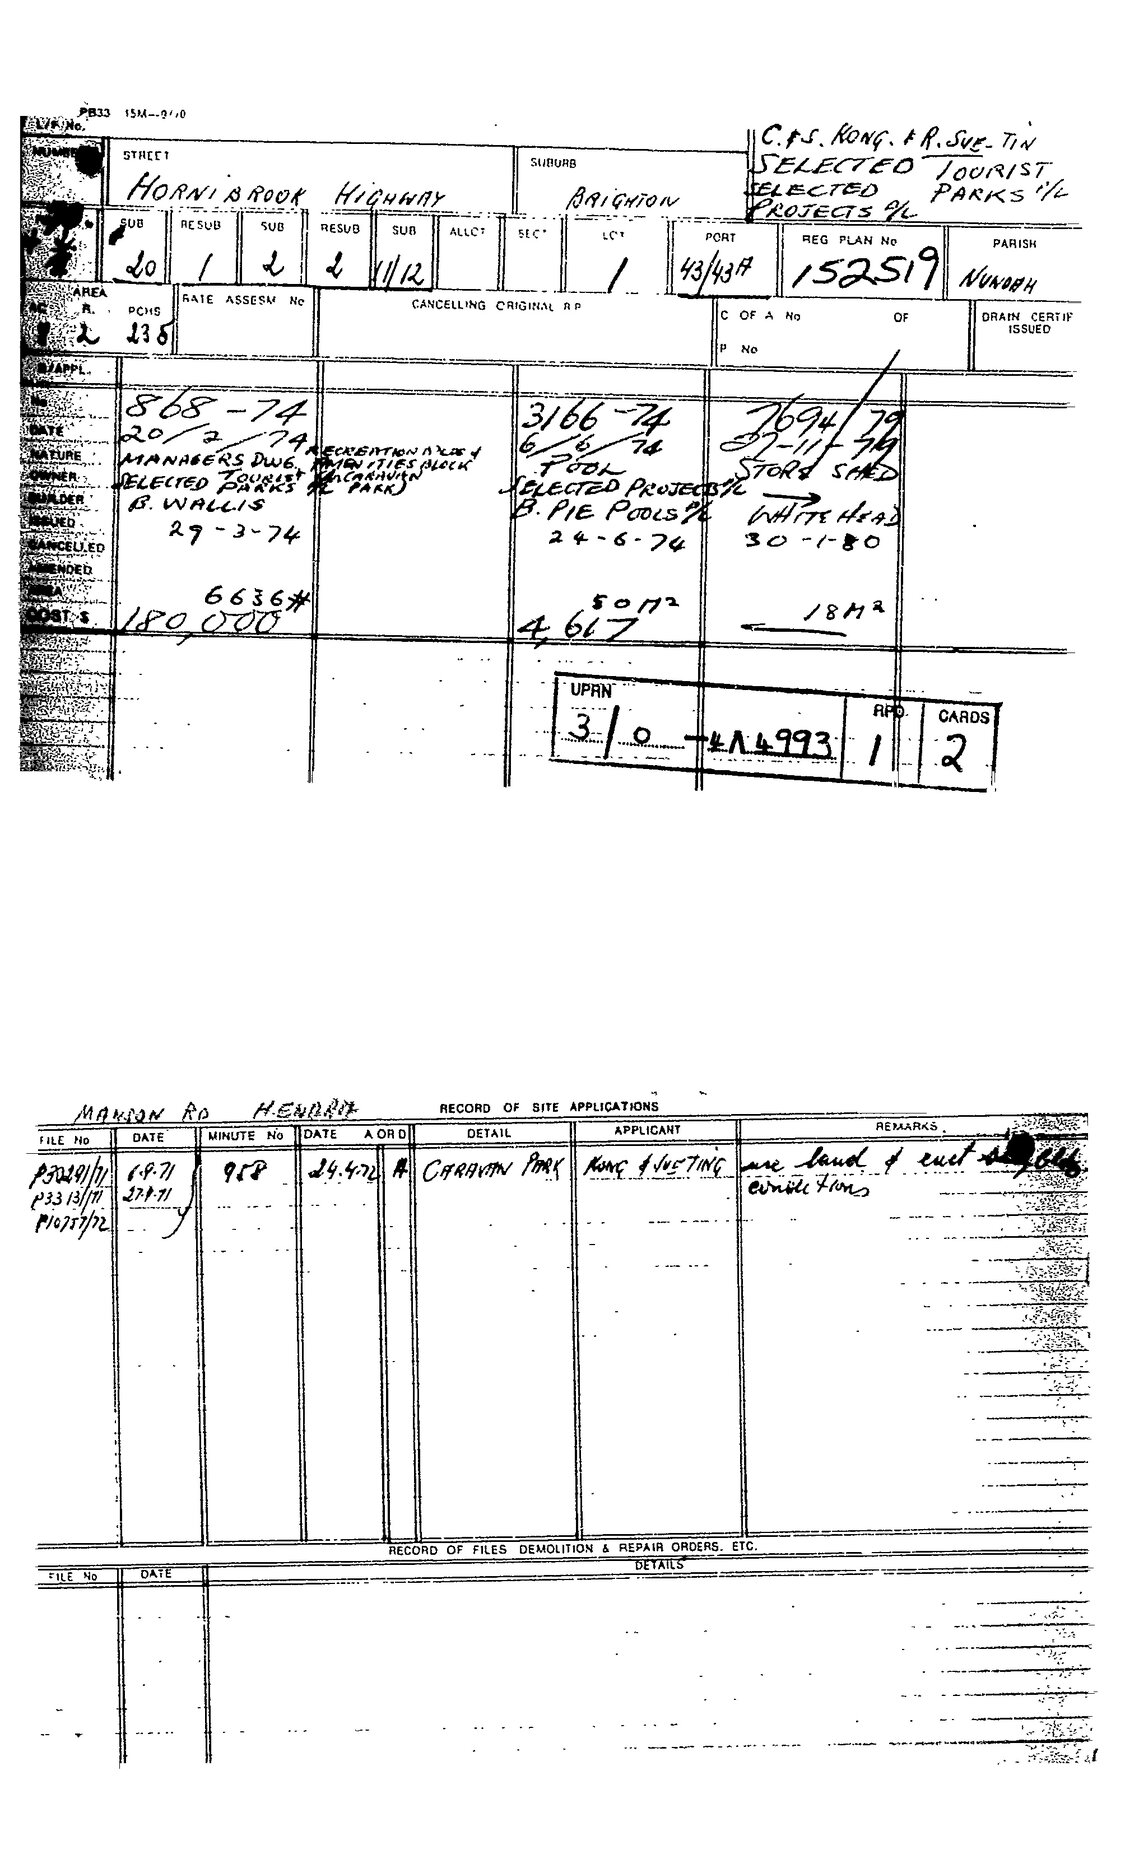 PB33 15M—9/70
L/P No.
C. & S. KONG. & R. SUE-TIN
STREET
SUBURB
SELECTED TOURIST
HORNIBROOK HIGHWAY
BRIGHTON
SELECTED PARKS P/L
PROJECTS P/L
SUB RESUB SUB RESUB SUB ALLOT SECT LOT PORT REG PLAN No PARISH
20 1 2 2 11/12 1 43/43A 152519 NUNDAH
AREA
RATE ASSESM No
CANCELLING ORIGINAL R P
C OF A No OF
DRAIN CERTIF
ISSUED
R. PCHS
2 235
P No
B/APPL.
No 868-74 3166-74 7694/79
DATE 20/2/74 6/6/74 27-11-79
NATURE MANAGERS DWG. RECREATION BLDG & AMENITIES BLOCK POOL STORE SHED
OWNER SELECTED TOURIST PARKS P/L (CARAVAN PARK) SELECTED PROJECTS P/L →
BUILDER B. WALLIS B. PIE POOLS P/L WHITEHEAD
ISSUED 29-3-74 24-6-74 30-1-80
CANCELLED
AMENDED
AREA 6636# 50 M² 18 M²
COST $ 180,000 4,617
UPRN RPD CARDS
3/0 1 2
MANSON RD HENDRA RECORD OF SITE APPLICATIONS
FILE No DATE MINUTE No DATE A OR D DETAIL APPLICANT REMARKS
P30291/71 6.9.71 958 24.4.72 A CARAVAN PARK KONG & SUETING use land & erect
27.9.71 conditions
P10757/72
RECORD OF FILES DEMOLITION & REPAIR ORDERS. ETC.
FILE No DATE DETAILS